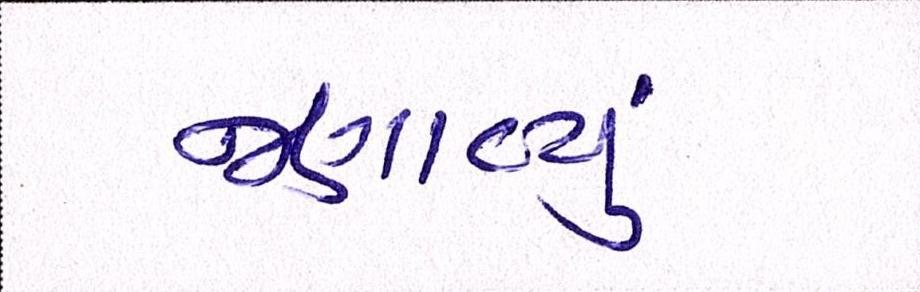 જણાવ્યું